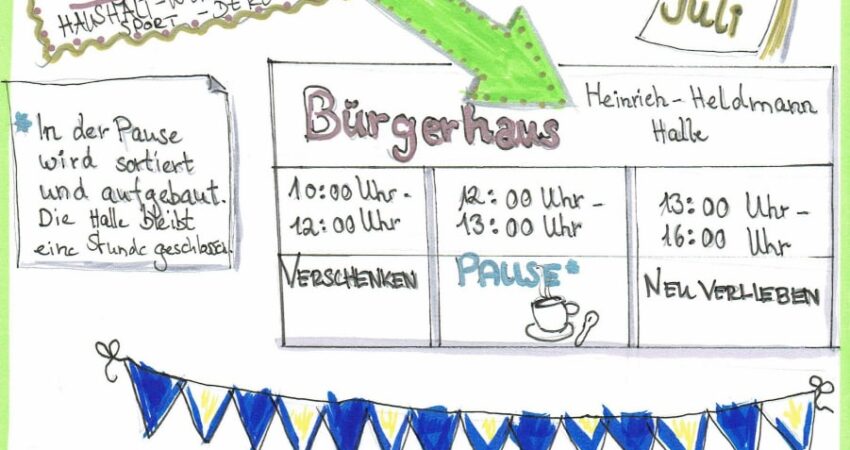 HAUSHALT
SPORT - DEKO
Juli
Bürgerhaus
Heinrich-Heldmann
Halle
* In der Pause
wird sortiert
und aufgebaut.
Die Halle bleibt
eine Stunde geschlossen.
10:00 Uhr -
12:00 Uhr
VERSCHENKEN
12:00 Uhr -
13:00 Uhr
PAUSE*
13:00 Uhr -
16:00 Uhr
NEU VERLIEBEN